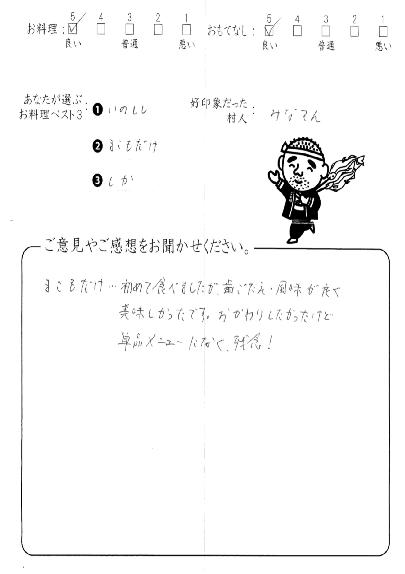 お料理: 5 4 3 2 1 おもてなし: 5 4 3 2 1
良い 普通 悪い 良い 普通 悪い
あなたが選ぶ
お料理ベスト3
❶ いのしし
❷ まこもだけ
❸ しか
好印象だった
村人 : みなさん
ご意見やご感想をお聞かせください。
まこもだけ…初めて食べましたが、歯ごたえ・風味が良く
美味しかったです。おかわりしたかったけど
単品メニューになく、残念!